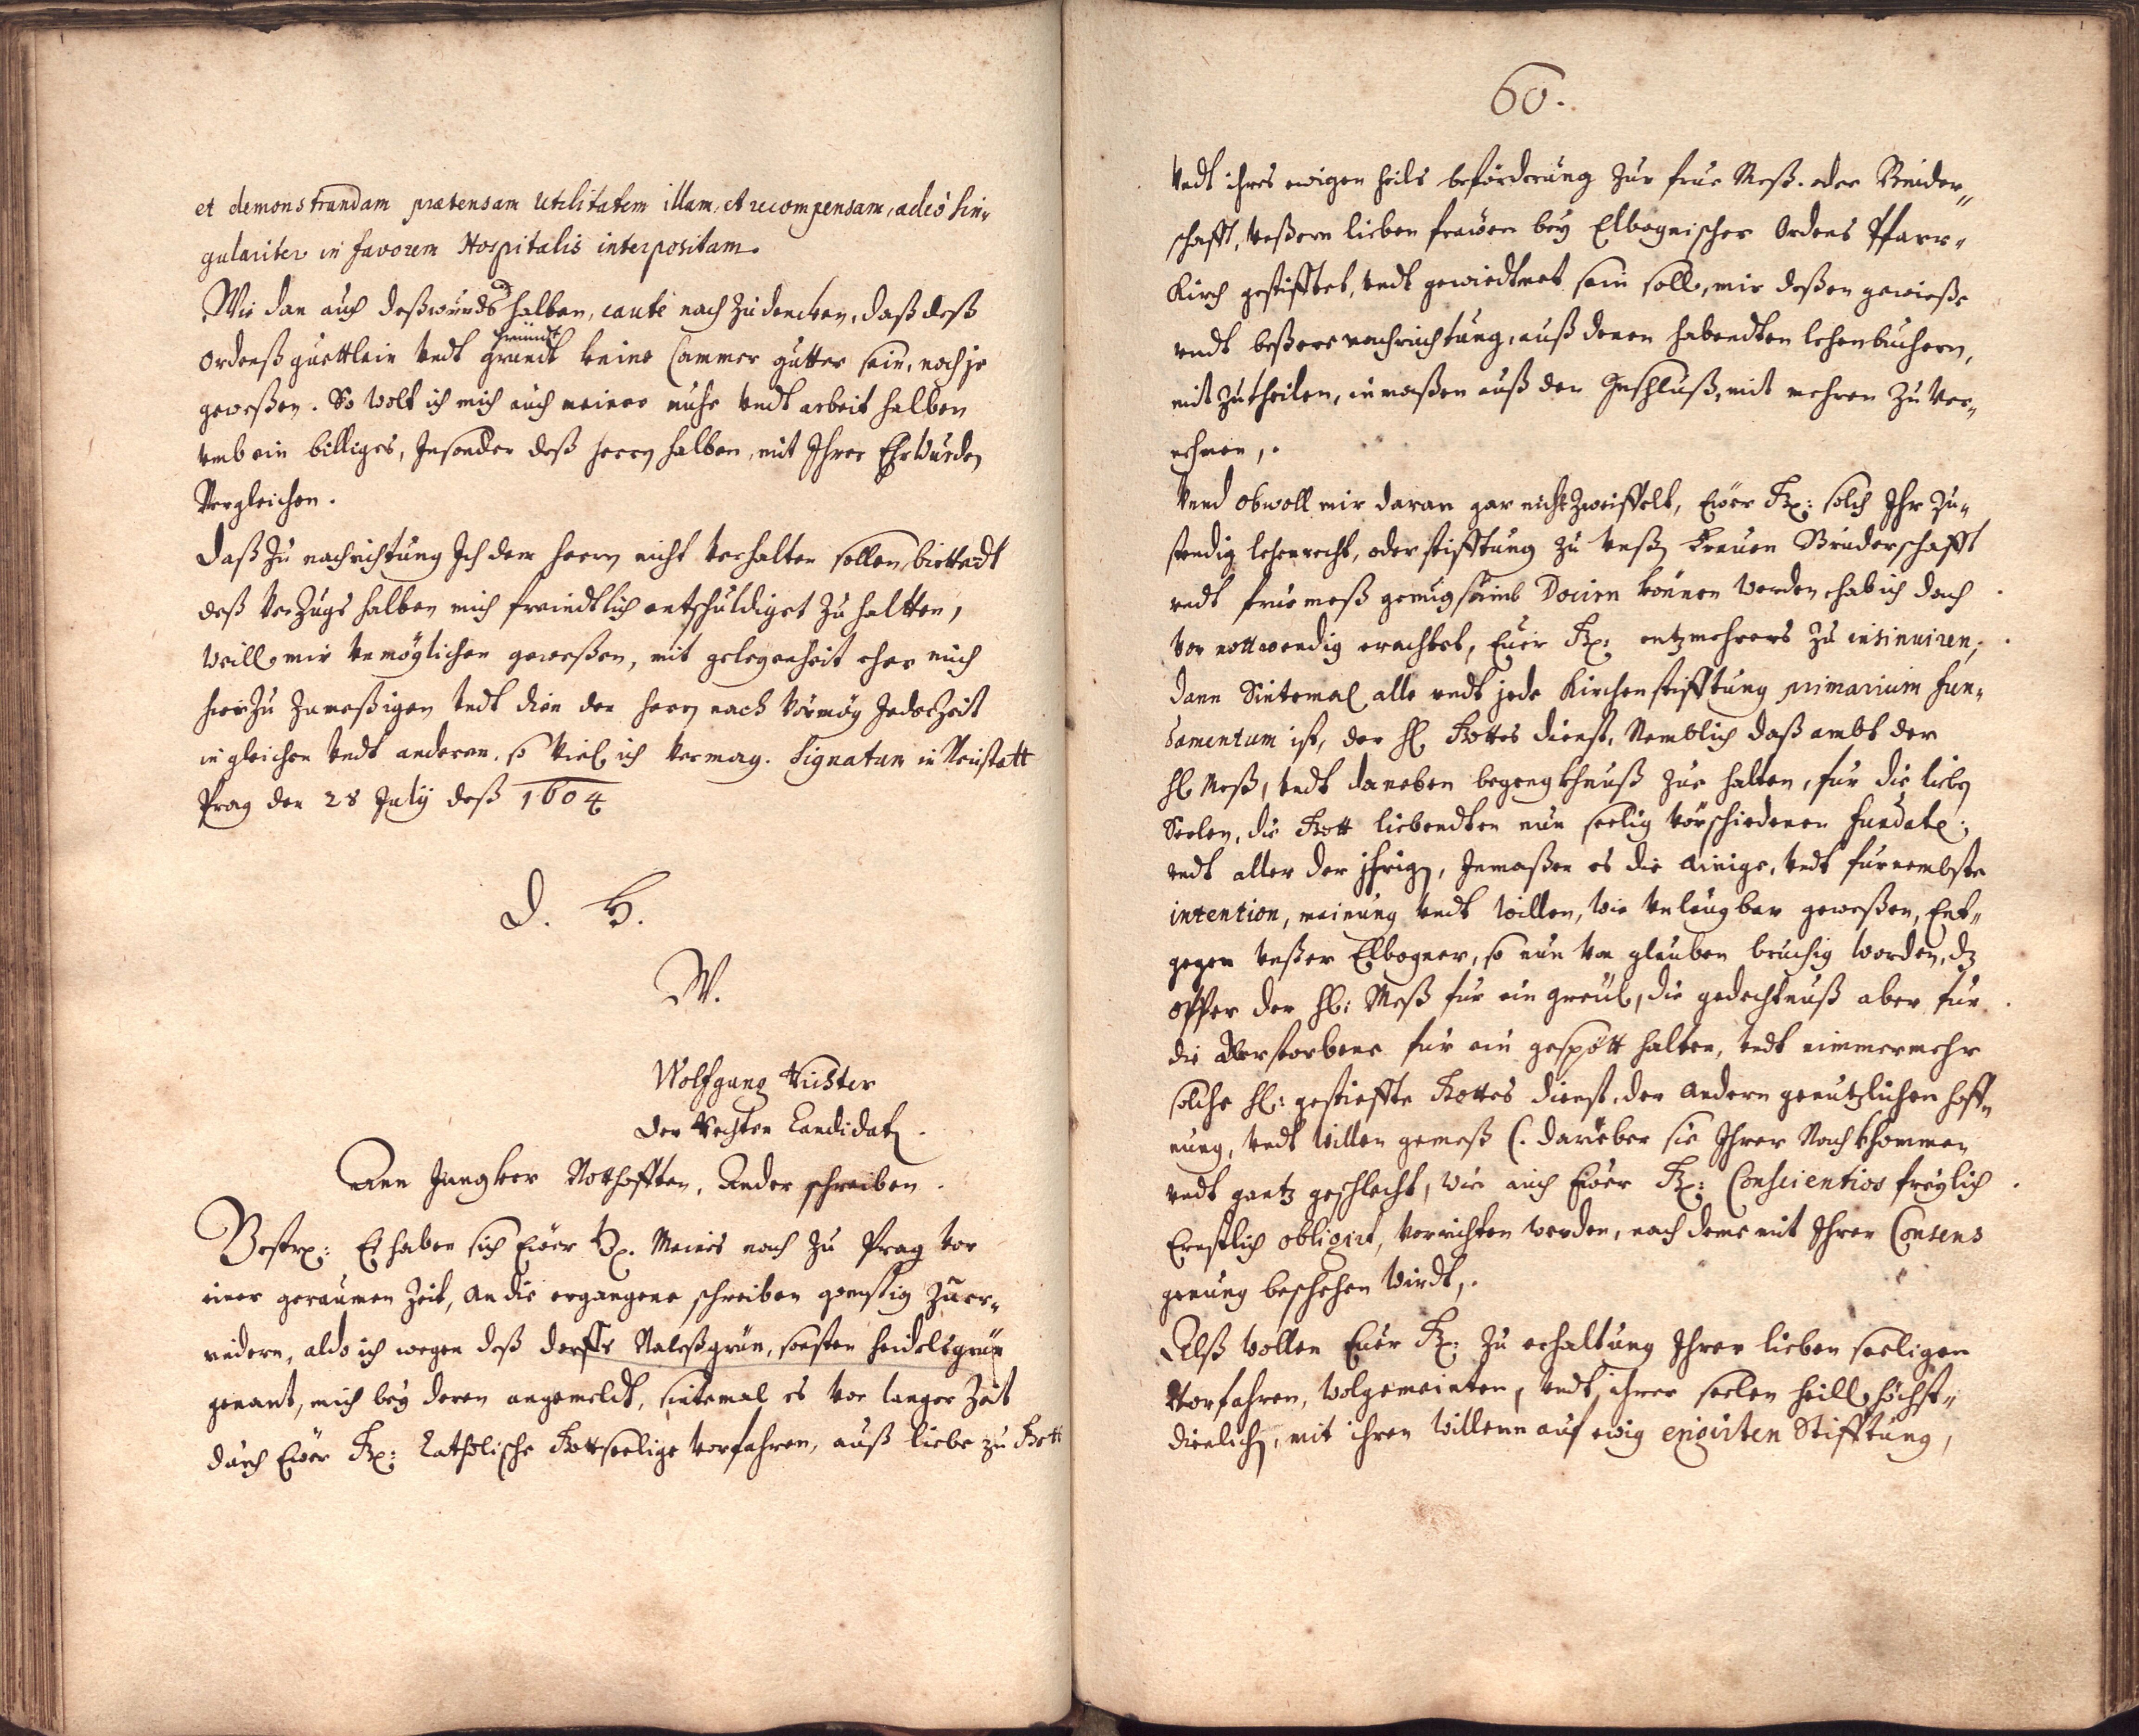 et demonstrandam prætensam utilitatem illam, et recompensam, adeò sin-
gulariter in favorem Hospitalis interpositam.
Wie dan auch deßwends halben, cautè nach zu dencken, daß deß
freundt
Ordenß guettlein undt grundt keine Cammer gutter sein, noch je
geweßen. So wolt ich mich auch meiner muhe undt arbeit halben
umb ein billiges, Insonder deß herrn halben, mit Ihrer Ehrwurden
Vergleichen.
Daß zu nachrichtung Ich dem herrn nicht verhalten sollen, bittendt
deß verzugs halben mich freindtlich entschuldiget zu haltten,
weill mir unmöglichen geweßen, mit gelegenheit eher mich
hierzu zumeßigen undt dien dem herrn nach vermög Jederzeit
in gleichen undt anderen, so viel ich vermag. Signatum in Neustatt
Prag den 28 July deß 1604
D. H.
W.
Wolfgang Richter
der Rechten Candidat.
Ann Jungker Notthofften, Ander schreiben.
Gestr: Es haben sich Eüer G. Meines noch zu Prag vor
einer geraumen Zeit, an die ergangene schreiben gonstig zu er-
indern, aldo ich wegen deß dorffs Naleßgrün, sonsten heidelsgrün
genant, mich bey deren angemeldt, sintemal es vor langer Zeit
durch Eüer G: Catholische Gottseelige vorfahren, auß liebe zu Gott
60.
undt ihres ewigen heils beförderung zur frue Meß. oder Bruder-
schafft, unßern lieben frauen bey Elbognischer Ordens Pfarr-
Kirch gestifftet, undt gewiedtmet sein soll, mir deßen gewieße
undt beßere nachrichtung, auß denen habendten lehenbuchern,
mit zutheilen, inmaßen auß den Inschluß, mit mehren zu ver-
nehmen,.
Und obwoll mir daran gar nicht zweiffelt, Eüer G: solch Ihr zu-
stendig lehenrecht, oder stifftung zu unß frauen Bruderschafft
undt fruemeß genugsamb Docirn können werden, hab ich doch
vor nottwendig erachtet, Euer G: entzmehrers zu insinuiren,
dann Sintemal alle undt jede Kirchenstifftung primarium fun-
damentum ist, der hl Gottes dienst, Nemblich daß ambt der
hl Meß, undt daneben begengkhnuß zue halten, fur die lieben
Seelen, die Gott liebendten nun seelig vorschiedenen fundat:
undt aller der ihrigen, Inmaßen es die Ainige, undt furnembste
intention, meinung undt willen, wie unleugbar geweßen, Ent-
gegen unßer Elbogner, so nun von glauben bruchig worden, dz
opffer der hl: Meß fur ein greul, die gedechtnuß aber fur
die Verstorbene fur ein gespött halten, undt nimmermehr
solche hl: gestieffte Gottes dienst, den andern genutzlichen hoff-
nung, undt willen gemeß (. darüber sie Ihrer Nachkhommen
undt gantz geschlecht, wie auch Eüer G: Conscientios freylich
Ernstlich obligirt, verrichten werden, nach deme mit Ihren Consens
genung beschehen wirdt,.
Alß wollen Euer G: zu erhaltung Ihrer lieben seeligen
Vorfahren, wolgemeinten, undt ihrer seelen heill höchst-
dienlich, mit ihren willenn auf ewig erigirten Stifftung,